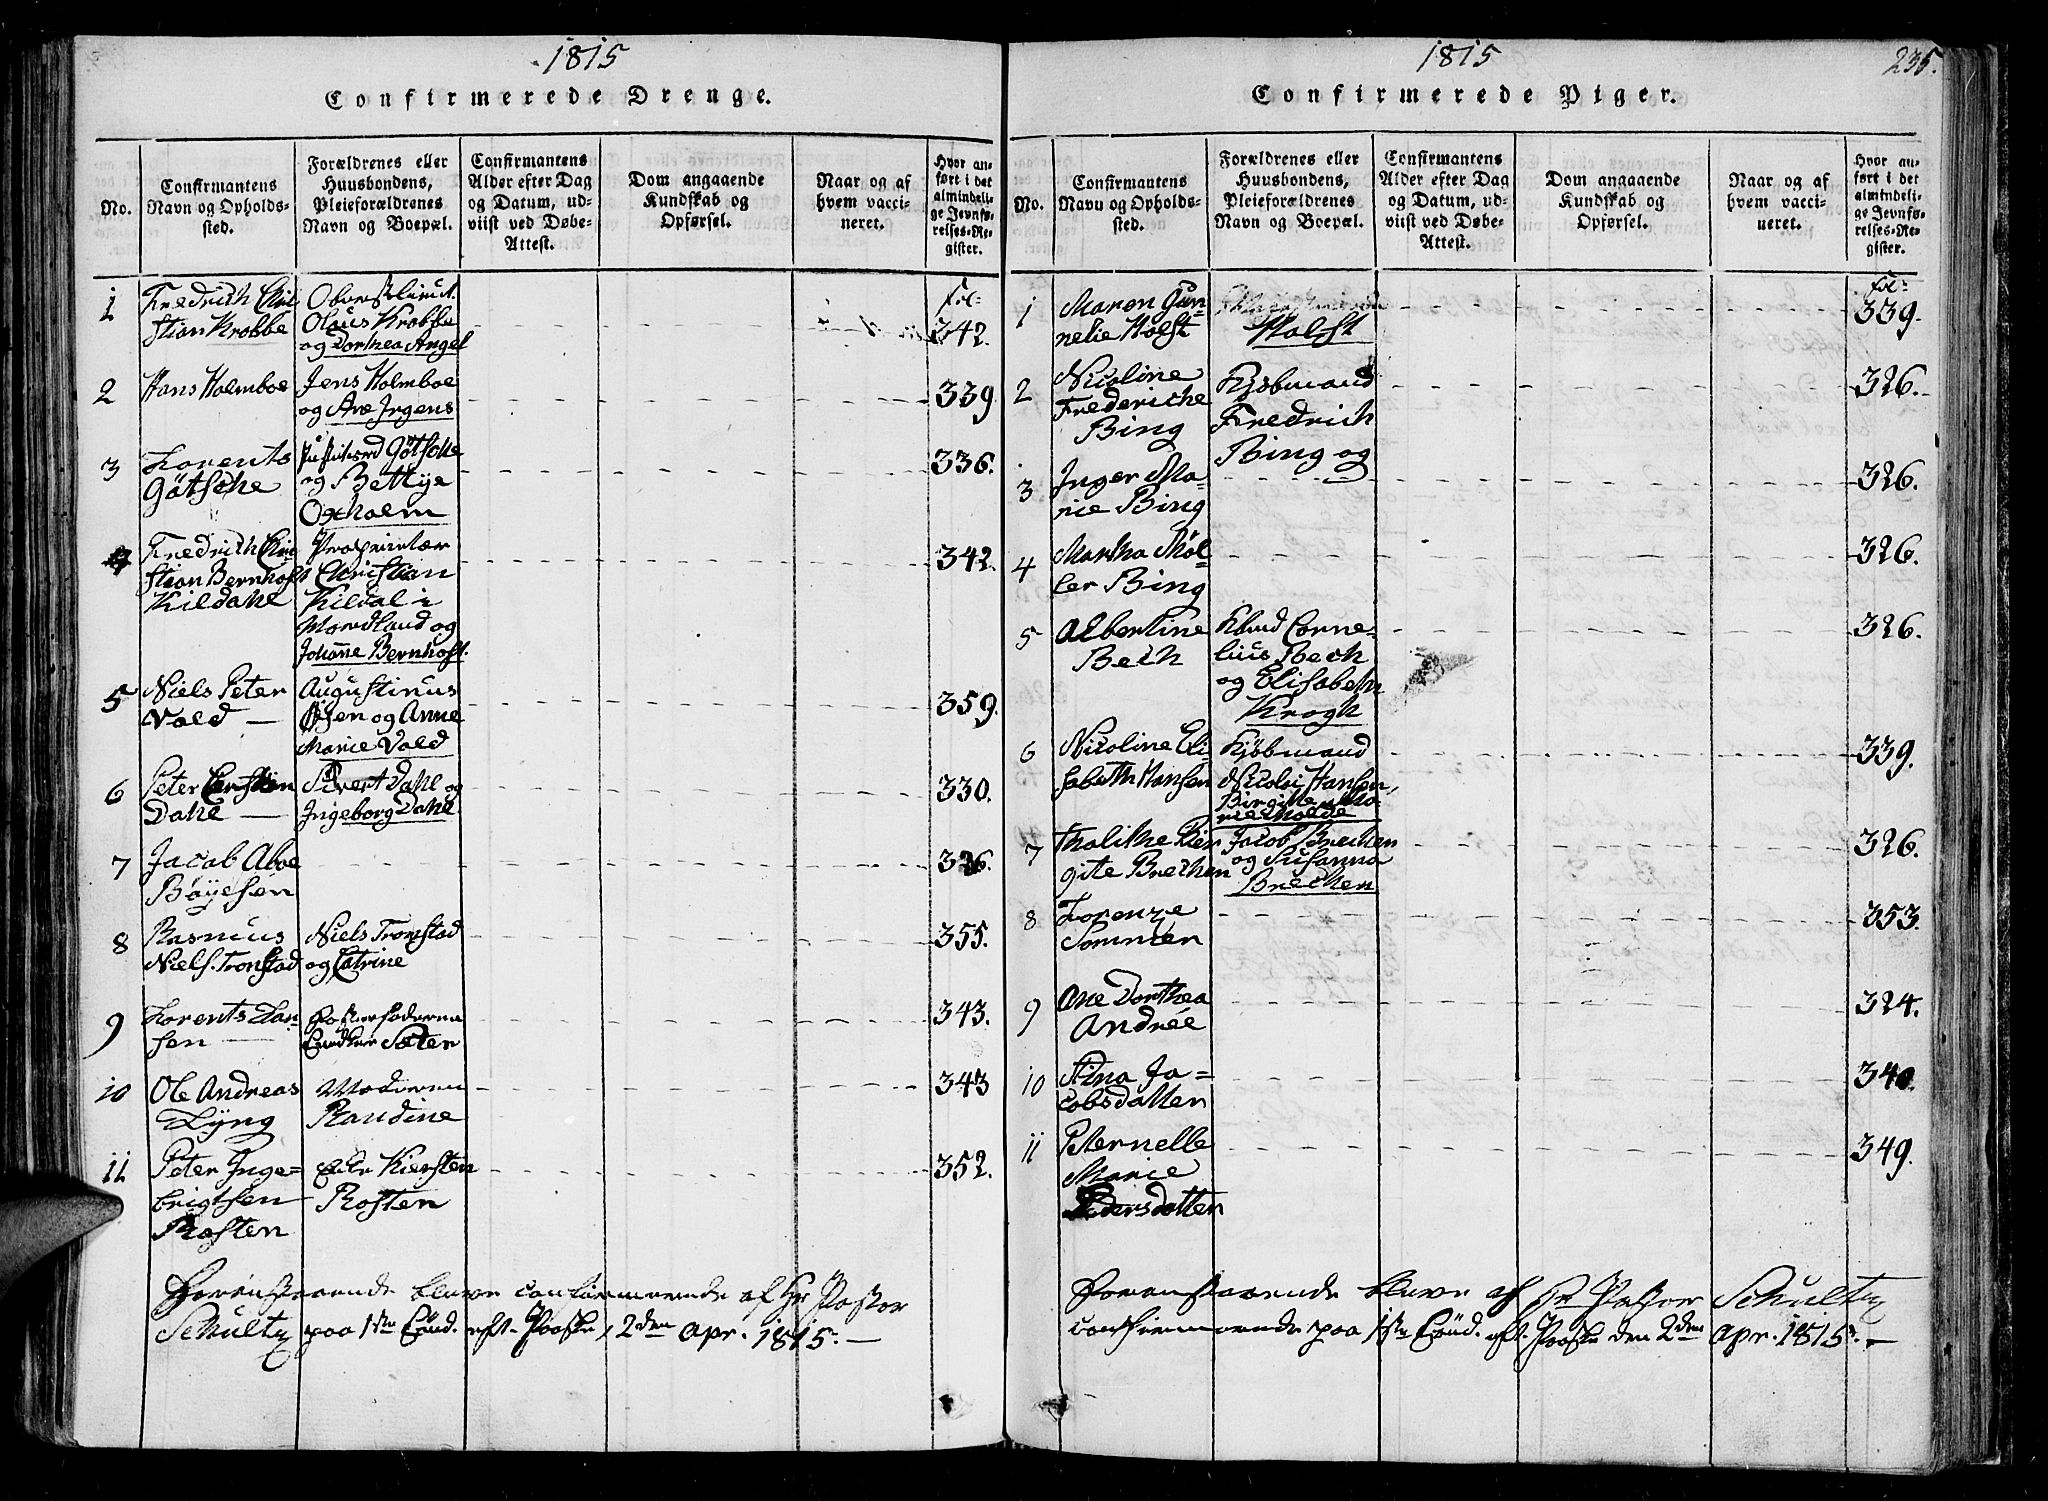 1815
Confirmerede Drenge.
No.
Confirmantens
Navn og Opholds-
sted.
Forældrenes eller
Huusbondens,
Pleieforældrenes
Navn og Boepæl.
Confirmantens
Alder efter Dag
og Datum, ud-
viist ved Døbe-
Attest.
Dom angaaende
Kundskab og
Opførsel.
Naar og af
hvem vacci-
neret.
Hvor an-
ført i det
almindeli-
ge Jevnfø-
relses-Re-
gister.
1
Fredrich Chri
stian Krobbe
Oberstlieut.
Olaus Krabbe
og Dorthea Angel
Fol:
342.
2
Hans Holmboe
Jens Holmboe
og Ane Irgens
339
3
Lorents
Götsche
Götsche
og Bettije
Oxholm
336.
4
Fredrich Chri
stian Bernhoft
Kildahl
Proprietær
Christian
Kildal i
Mordland og
Johanne Bernhoft.
342.
5
Niels Peter
Vold —
Augustinus
Olsen og Anne
Marie Vold
359.
6
Peter
Dahl —
Sivert Dahl og
Ingeborg Dahl
330.
7
Jacob Aboe
Böyesen
326.
8
Rasmus
Niels. Tronstad
Niels Tronstad
og Catrine
355.
9
Lorents Lar-
sen —
Fosterfaderen
Sæter
343.
10
Ole Andreas
Lÿng
Moderen
Randine
343
11
Peter Inge-
brigtsen
Rosten
Kiersten
Rosten
352.
Foranstaaende bleve confirmerede af Hr Pastor
Schultz paa 1ste Sönd. eft. Paaske, 2den Apr. 1815. —
1815
235.
Confirmerede Piger.
No.
Confirmantens
Navn og Opholds-
sted.
Forældrenes eller
Huusbondens,
Pleieforældrenes
Navn og Boepæl.
Confirmantens
Alder efter Dag
og Datum, ud-
viist ved Døbe-
Attest.
Dom angaaende
Kundskab og
Opførsel.
Naar og af
hvem vacci-
neret.
Hvor an-
ført i det
almindeli-
ge Jevnfø-
relses-Re-
gister.
1
Maren Gun-
nelie Holst
Holst
Fol:
339.
2
Nicoline
Frederiche
Bing
Kjøbmand
Fredrich
Bing og
326.
3
Inger Ma-
rie Bing
326.
4
Martha Möl-
ler Bing
326.
5
Albertine
Bech
Kbmd Corne-
lius Bech
og Elisabeth
Krogh
326.
6
Nicoline Eli-
sabeth Hansen
Kjøbmand
Nicolai Hansen,
Birgitte Ma-
rie Molde
339.
7
Thalithe Bier
gite Brechen
Jacob Brechen
og Susanna
Brechen
326.
8
Lorenze
Sommer
353.
9
Ane Dorthea
Andrée
324.
10
Stina Ja-
cobsdatter
340.
11
Peternelle
Marie
Pedersdatter
349.
Foranstaaende bleve af Hr Pastor Schultz
confirmerede paa 1ste Sönd. eft. Paaske den 2den Apr. 1815. —